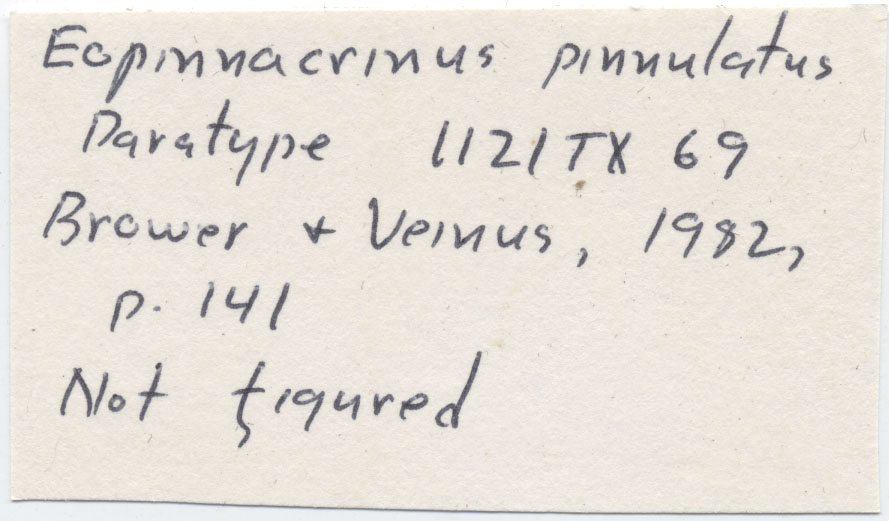 Eopinnacrinus pinnulatus
Paratype 1121 TX 69
Brower + Veinus, 1982,
p. 141
Not figured